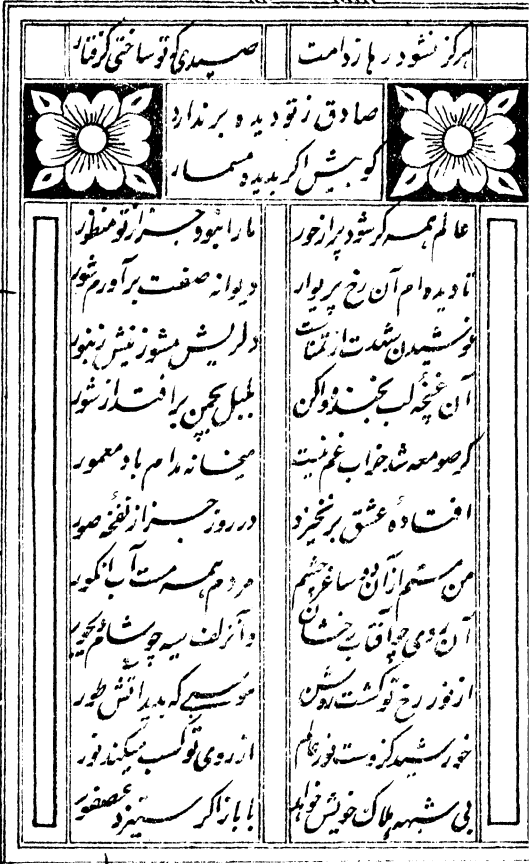 هرگز نشود رها ز دامت صیدی که تو ساختی گرفتار
صادق ز تو دیده برندارد
کوبیش اگر بدیده مسمار
عالم همه گر شود پر از حور ما را نبود جز از تو منظور
تا دیده‌ام آن رخ پریوار دیوانه صفت برآورم شور
شد از دلریش مشو ز نیش زنبور
آن غنچه لب بخند و واکن بلبل بچمن برافتد از شور
گر صومعه شد خراب غم نیست میخانه مدام باد معمور
افتادهٔ عشق برنخیزد در روز جز از نفخهٔ صور
من مستم از آن دو ساغر چشم مردم همه مست آب انگور
آن روی چو آفتاب رخشان وآنزلف سیه چو شام دیجور
از نور رخ تو گشت روشن موسی که بدید آتش طور
خورشید کزوست نور عالم از روی تو کسب میکند نور
بی شبهه هلاک خویش خواهد با باز اگر ستیزد عصفور